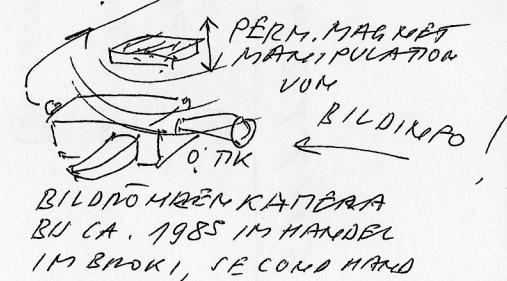 PERM. MAGNET
MANIPULATION
VOM
BILDINPO
O'ПK
BILDRÖHREN KAMERA
BIJ CA. 1985 IM HANDEL
IM BROKI, SECOND HAND